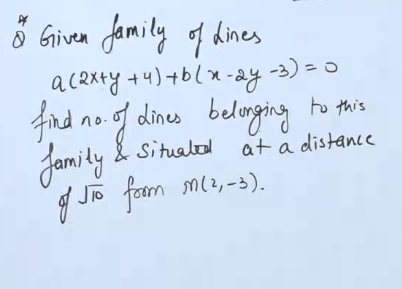 * Q Given family of Lines
a(2x+y+4)+b(x-2y-3)=0
find no. of Lines belonging to this
family & situated at a distance
of √10 from M(2,-3).